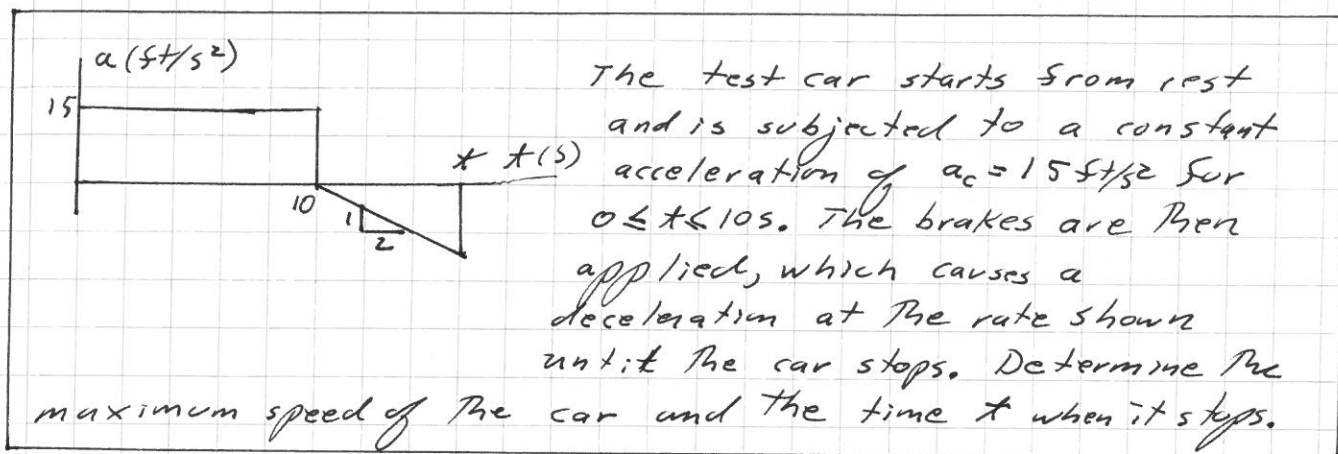 a (ft/s²)
15
10
1
2
t t(s)
The test car starts from rest
and is subjected to a constant
acceleration of a_c = 15 ft/s² for
0 ≤ t ≤ 10s. The brakes are then
applied, which causes a
deceleration at the rate shown
until the car stops. Determine the
maximum speed of the car and the time t when it stops.